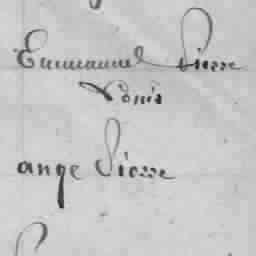 Emmanuel Pierre
Louis
ange Pierre